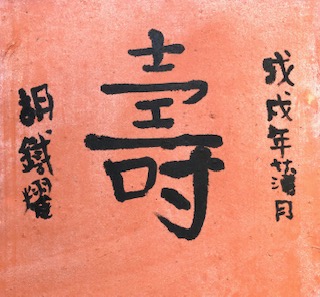 戊戌年蒲月
壽
胡鐵耀